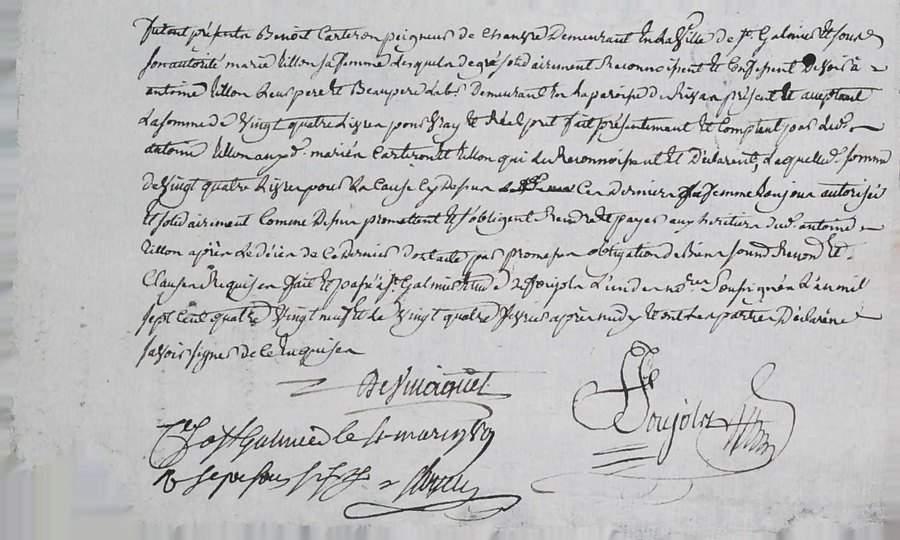 furent présents Benoit Carteron peigneur de chanvre Demeurant En la Ville de st Galmier Et sous
son autorité marie Villon sa femme Lesquels de gré solidairement Reconnoissent Et Confessent Devoir à
antoine Villon Leur pere Et Beaupere Labr Demeurant En La paroisse de présent Et acceptant
La somme de Vingt quatre Livres pour Vray et Réel pret fait présentement Et Comptant par ledt
antoine Villon auxd. mariés Carteron Et Villon qui Le Reconnoissent Et Déclarent, Laquelle somme
de Vingt quatre Livres pour La Cause Cy Dessus Ces Derniers La femme toujours autorisée
Et solidairement Comme Dessus promettent Et s'obligent Rendre Et payer aux heritiers dud. antoine
Villon après Le décès de Ce Dernier par promesse obligation de Biens soumis Renond Et
Clauses Requises fait Et passé à st Galmier Etude de Foujols L'un des nores Soussignés L'an mil
sept Cent quatre Vingt neuf Et Le Vingt quatre fevrier après midy Et ont Les parties Déclaré ne
savoir signer de Ce Enquises
Foujols
Clé à st Galmier le 4 mars 1789
R